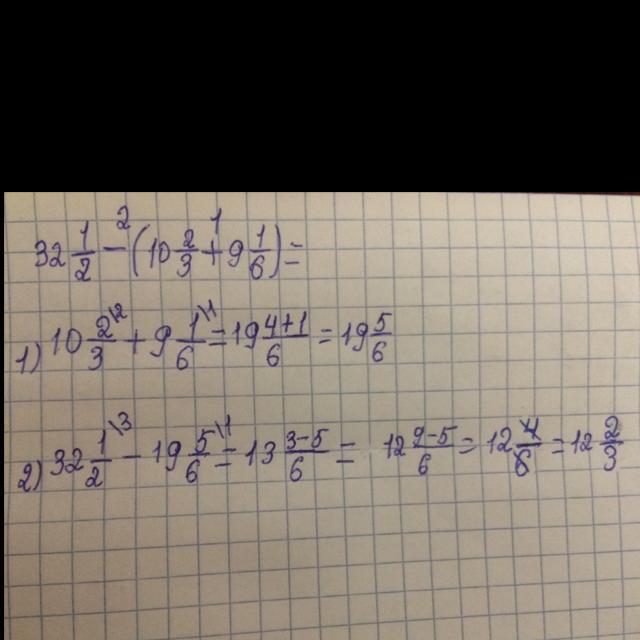 32 1/2 −² (10 2/3 +¹ 9 1/6) =
1) 10 2/3 \2 + 9 1/6 \1 = 19 4+1/6 = 19 5/6
2) 32 1/2 \3 − 19 5/6 \1 = 13 3−5/6 = 12 9−5/6 = 12 4/6 = 12 2/3